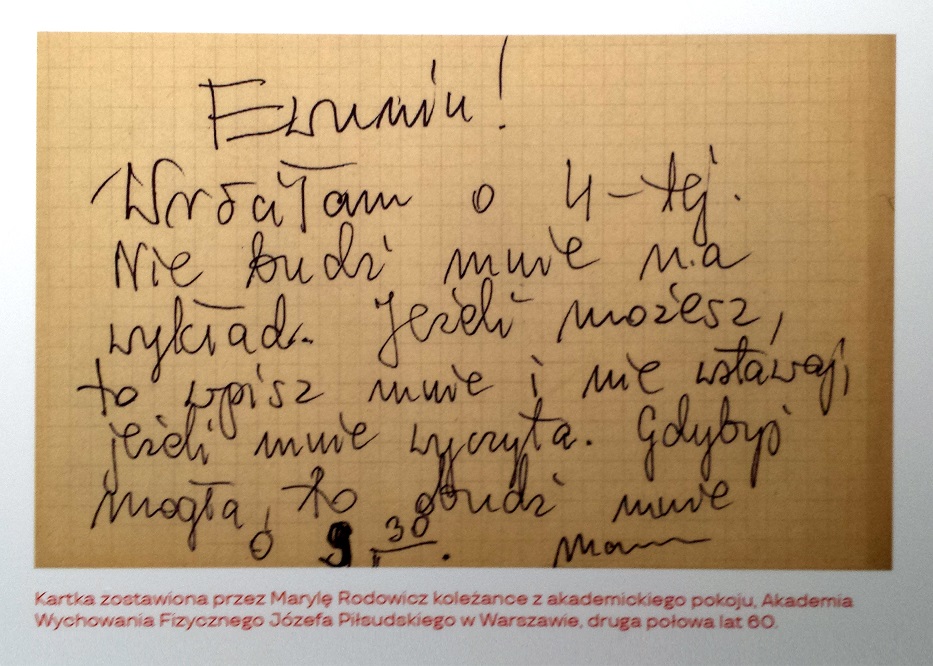 Ewuniu!
Wróciłam o 4-tej.
Nie budź mnie na
wykład. Jeżeli możesz,
to wpisz mnie i nie wstawaj,
jeżeli mnie wyczyta. Gdybyś
mogła, to obudź mnie
o 9³⁰.
Kartka zostawiona przez Marylę Rodowicz koleżance z akademickiego pokoju, Akademia
Wychowania Fizycznego Józefa Piłsudskiego w Warszawie, druga połowa lat 60.